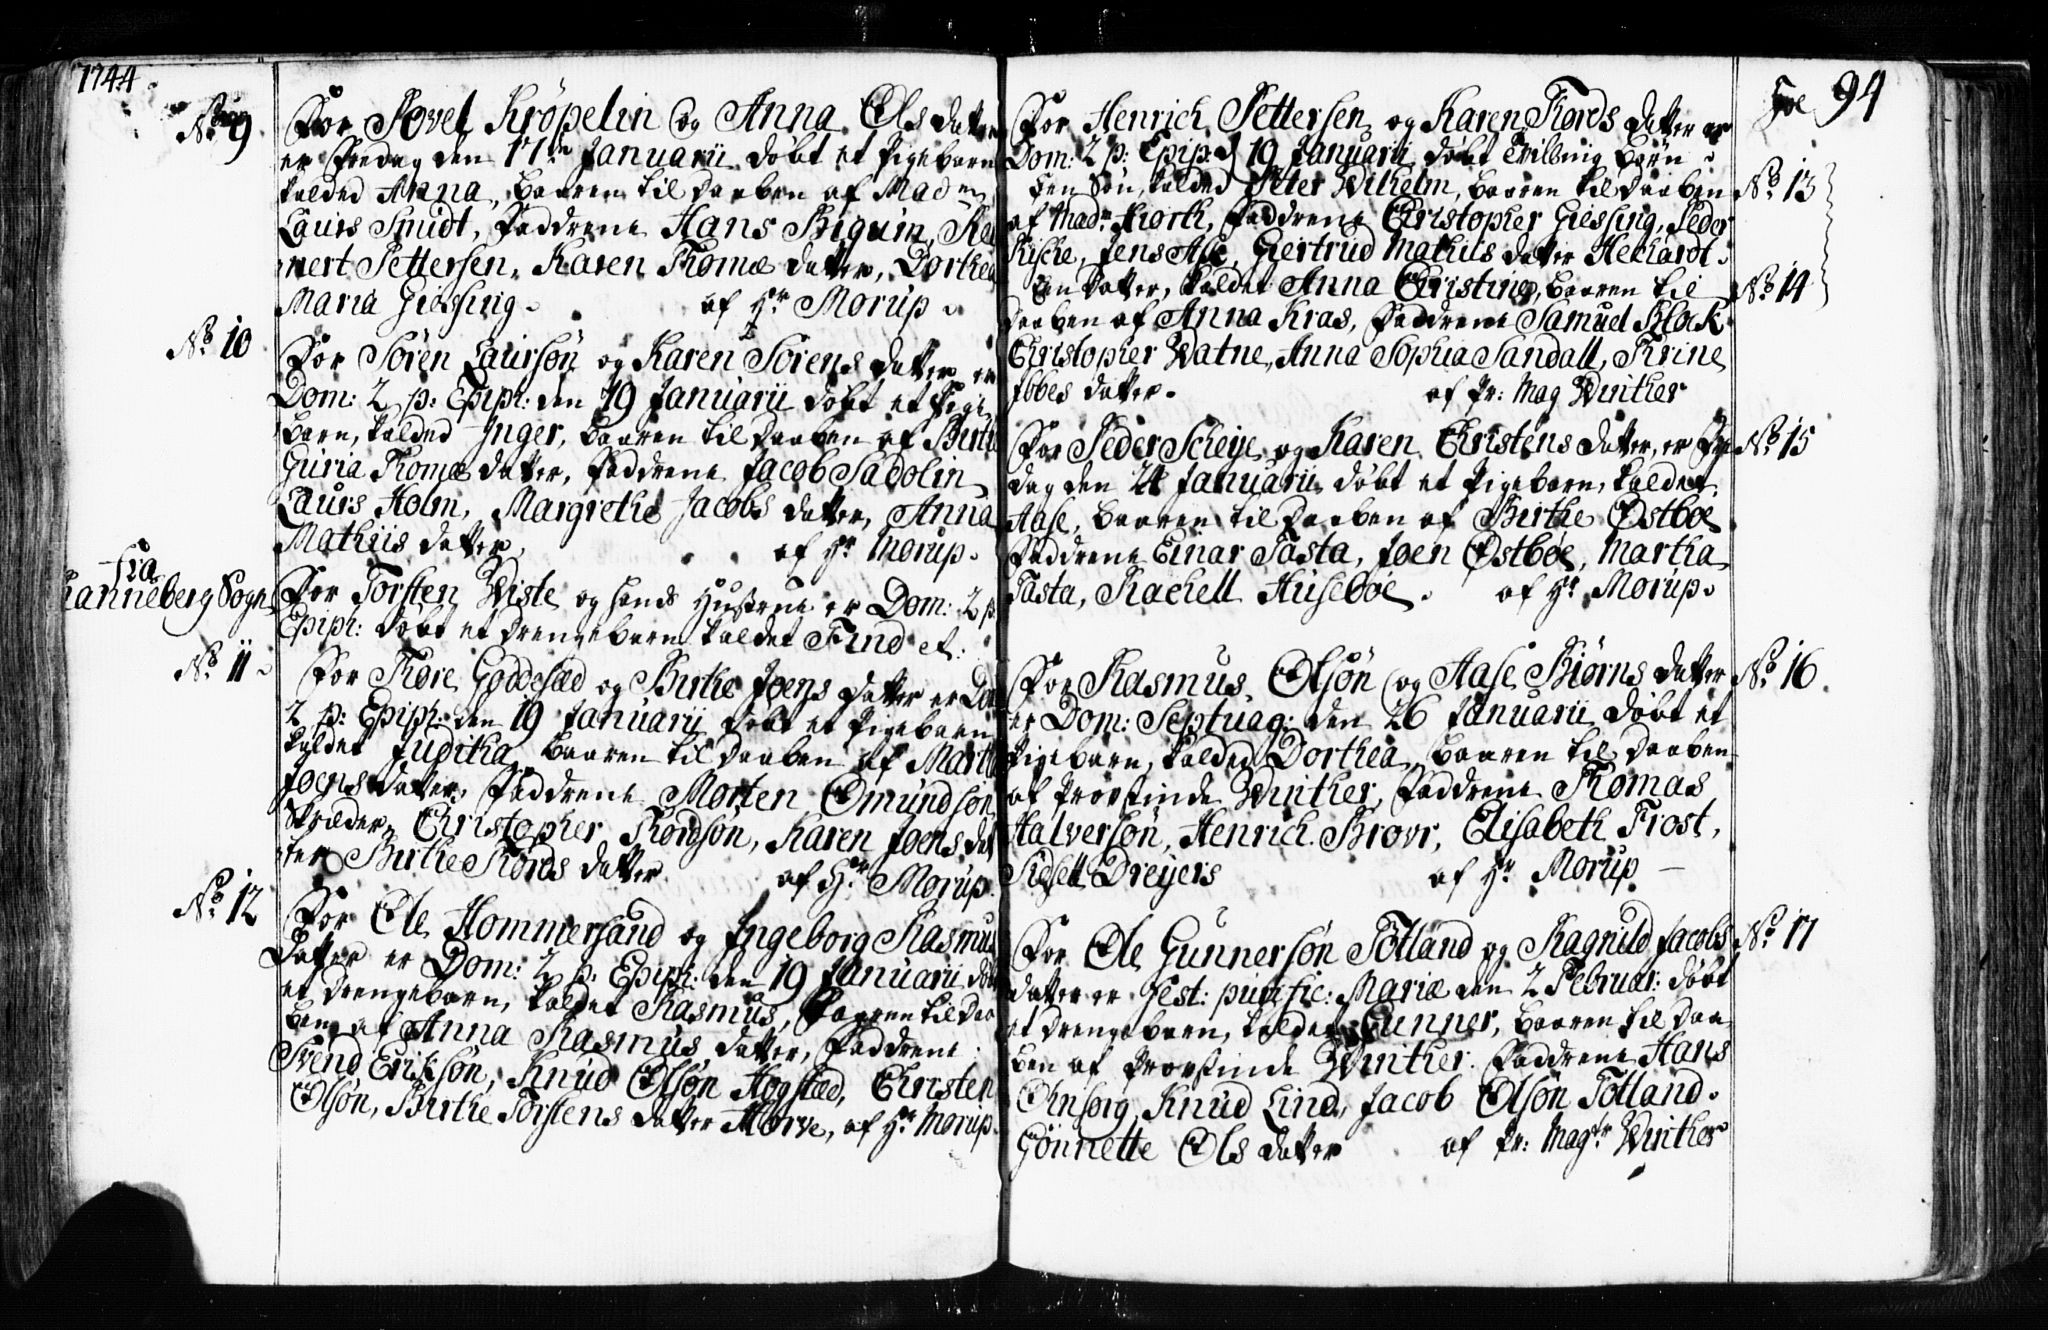 1744
No 9
For Povel Kröpelin og Anna Ols datter
er Fredag den 17de Januarii döbt et Pigebarn
kalded Anna, baaren til daaben af Madm
Laurs Smidt, Faddrene Hans Biguin, Rei
nert Pettersen, Karen Thomæ datter, Dorthea
Maria Giessing. af Hr Morup.
No 10
For Sören Laursön og Karen Sörens datter er
Dom: 2 p: Epiph: den 19 Januarii döbt et Pige
barn, kalded Inger, baaren til daaben af Birte
Guria Thomæ datter, Faddrene Jacob Sadolin
Laurs Holm, Margrethe Jacobs datter, Anna
Mathiis datter, af Hr Morup.
fra
Ranneberg Sogn
For Torsten Wiste og hans Hustrue er Dom: 2 p:
Epiph: döbt et drengebarn kaldet Find etc:
No 11
For Thore Goddesæd og Birthe Joens datter er Dom
2 p: Epiph: den 19 Januarii döbt et Pigebarn
kaldet Juditha, baaren til daaben af Martha
Joens datter, Faddrene Morten Omundsön
Skræder, Christopher Thordsön, Karen Joens dat
ter Birthe Thords datter af Hr Morup.
No 12
For Ole Hommersand og Ingeborg Rasmus
Datter er Dom: 2 p: Epiph: den 19 Januarii döbt
et drengebarn, kaldet Rasmus, baaren til daa
ben af Anna Rasmus datter, Faddrene
Svend Erichsön, Knud Olsön Hogstad, Christen
Olsön, Birthe Torstens datter Horve, af Hr Morup.
Fol 94
For Henrich Pettersen og Karen Thords datter er
Dom: 2 p: Epiph: d 19 Januarii döbt Tvilling börn
No 13
Een Sön, kalded Petter Wilhelm, baaren til daaben
af Madm Hiorth, Faddrene Christopher Giessing, Peder
Kische, Jens Ase, Giertrud Mathiis datter Heckardt.
No 14
Een datter, kaldet Anna Christine, baaren til
daaben af Anna Kras, Faddrene Samuel Block
Christopher Watne, Anna Sophia Sandall, Thrine
Ibbes datter. af Pr: Mag Winther
No 15
For Peder Scheye og Karen Christens datter, er Fre
dag den 24 Januarii döbt et Pigebarn, kaldet
Aase, baaren til daaben af Birthe Østbøe
Faddrene Einar Tasta, Joen Østbøe, Martha
Tasta, Rachell Husebøe. af Hr Morup.
No 16
For Rasmus Olsön og Aase Biørns datter
er Dom: Septuag: den 26 Januarii döbt et
Pigebarn, kalded Dorthea, baaren til daaben
af Provstinde Winther, Faddrene Thomas
Halversön, Henrich Brovr, Elisabeth Frost,
Sidsell Dreyers af Hr Morup
No 17
For Ole Gunnersön Totland og Ragnild Jacobs
datter er Fest: purific: Mariæ den 2 Februar: döbt
et drengebarn, kaldet Gunner, baaren til daa
ben af Provstinde Winther. Faddrene Hans
Ohnsorg, Knud Lind, Jacob Olsön Totland.
Gönnette Ols datter af Pr: Magtr Winther